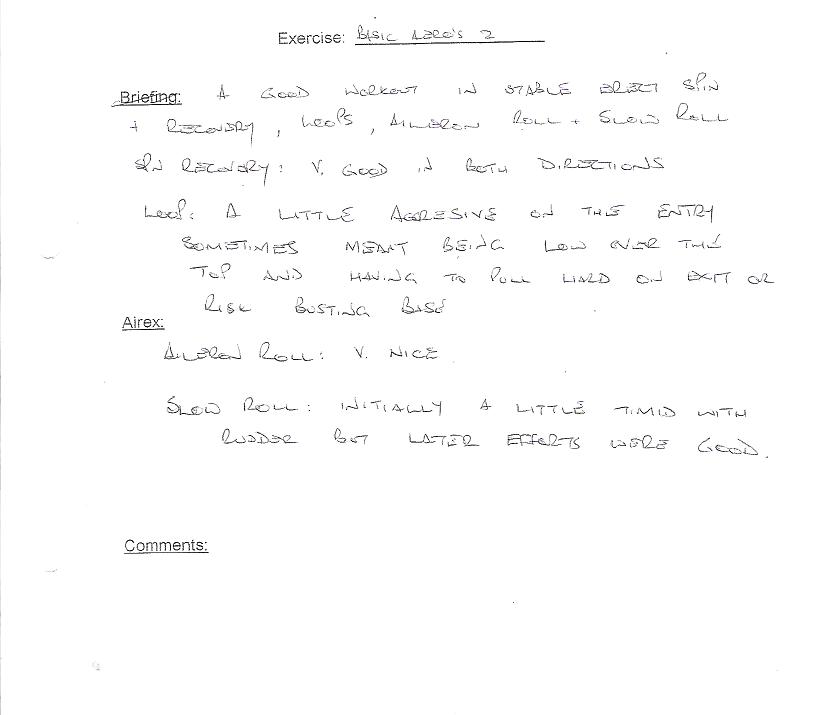 Exercise: BASIC AERO'S 2
Briefing: A GOOD WORKOUT IN STABLE ERECT SPIN
+ RECOVERY, LOOPS, AILERON ROLL + SLOW ROLL
SPIN RECOVERY: V. GOOD IN BOTH DIRECTIONS
LOOP: A LITTLE AGGRESIVE ON THE ENTRY
SOMETIMES MEANT BEING LOW OVER THE
TOP AND HAVING TO PULL HARD ON EXIT OR
RISK BUSTING BASE
Airex:
AILERON ROLL: V. NICE
SLOW ROLL: INITIALLY A LITTLE TIMID WITH
RUDDER BUT LATER EFFORTS WERE GOOD.
Comments: